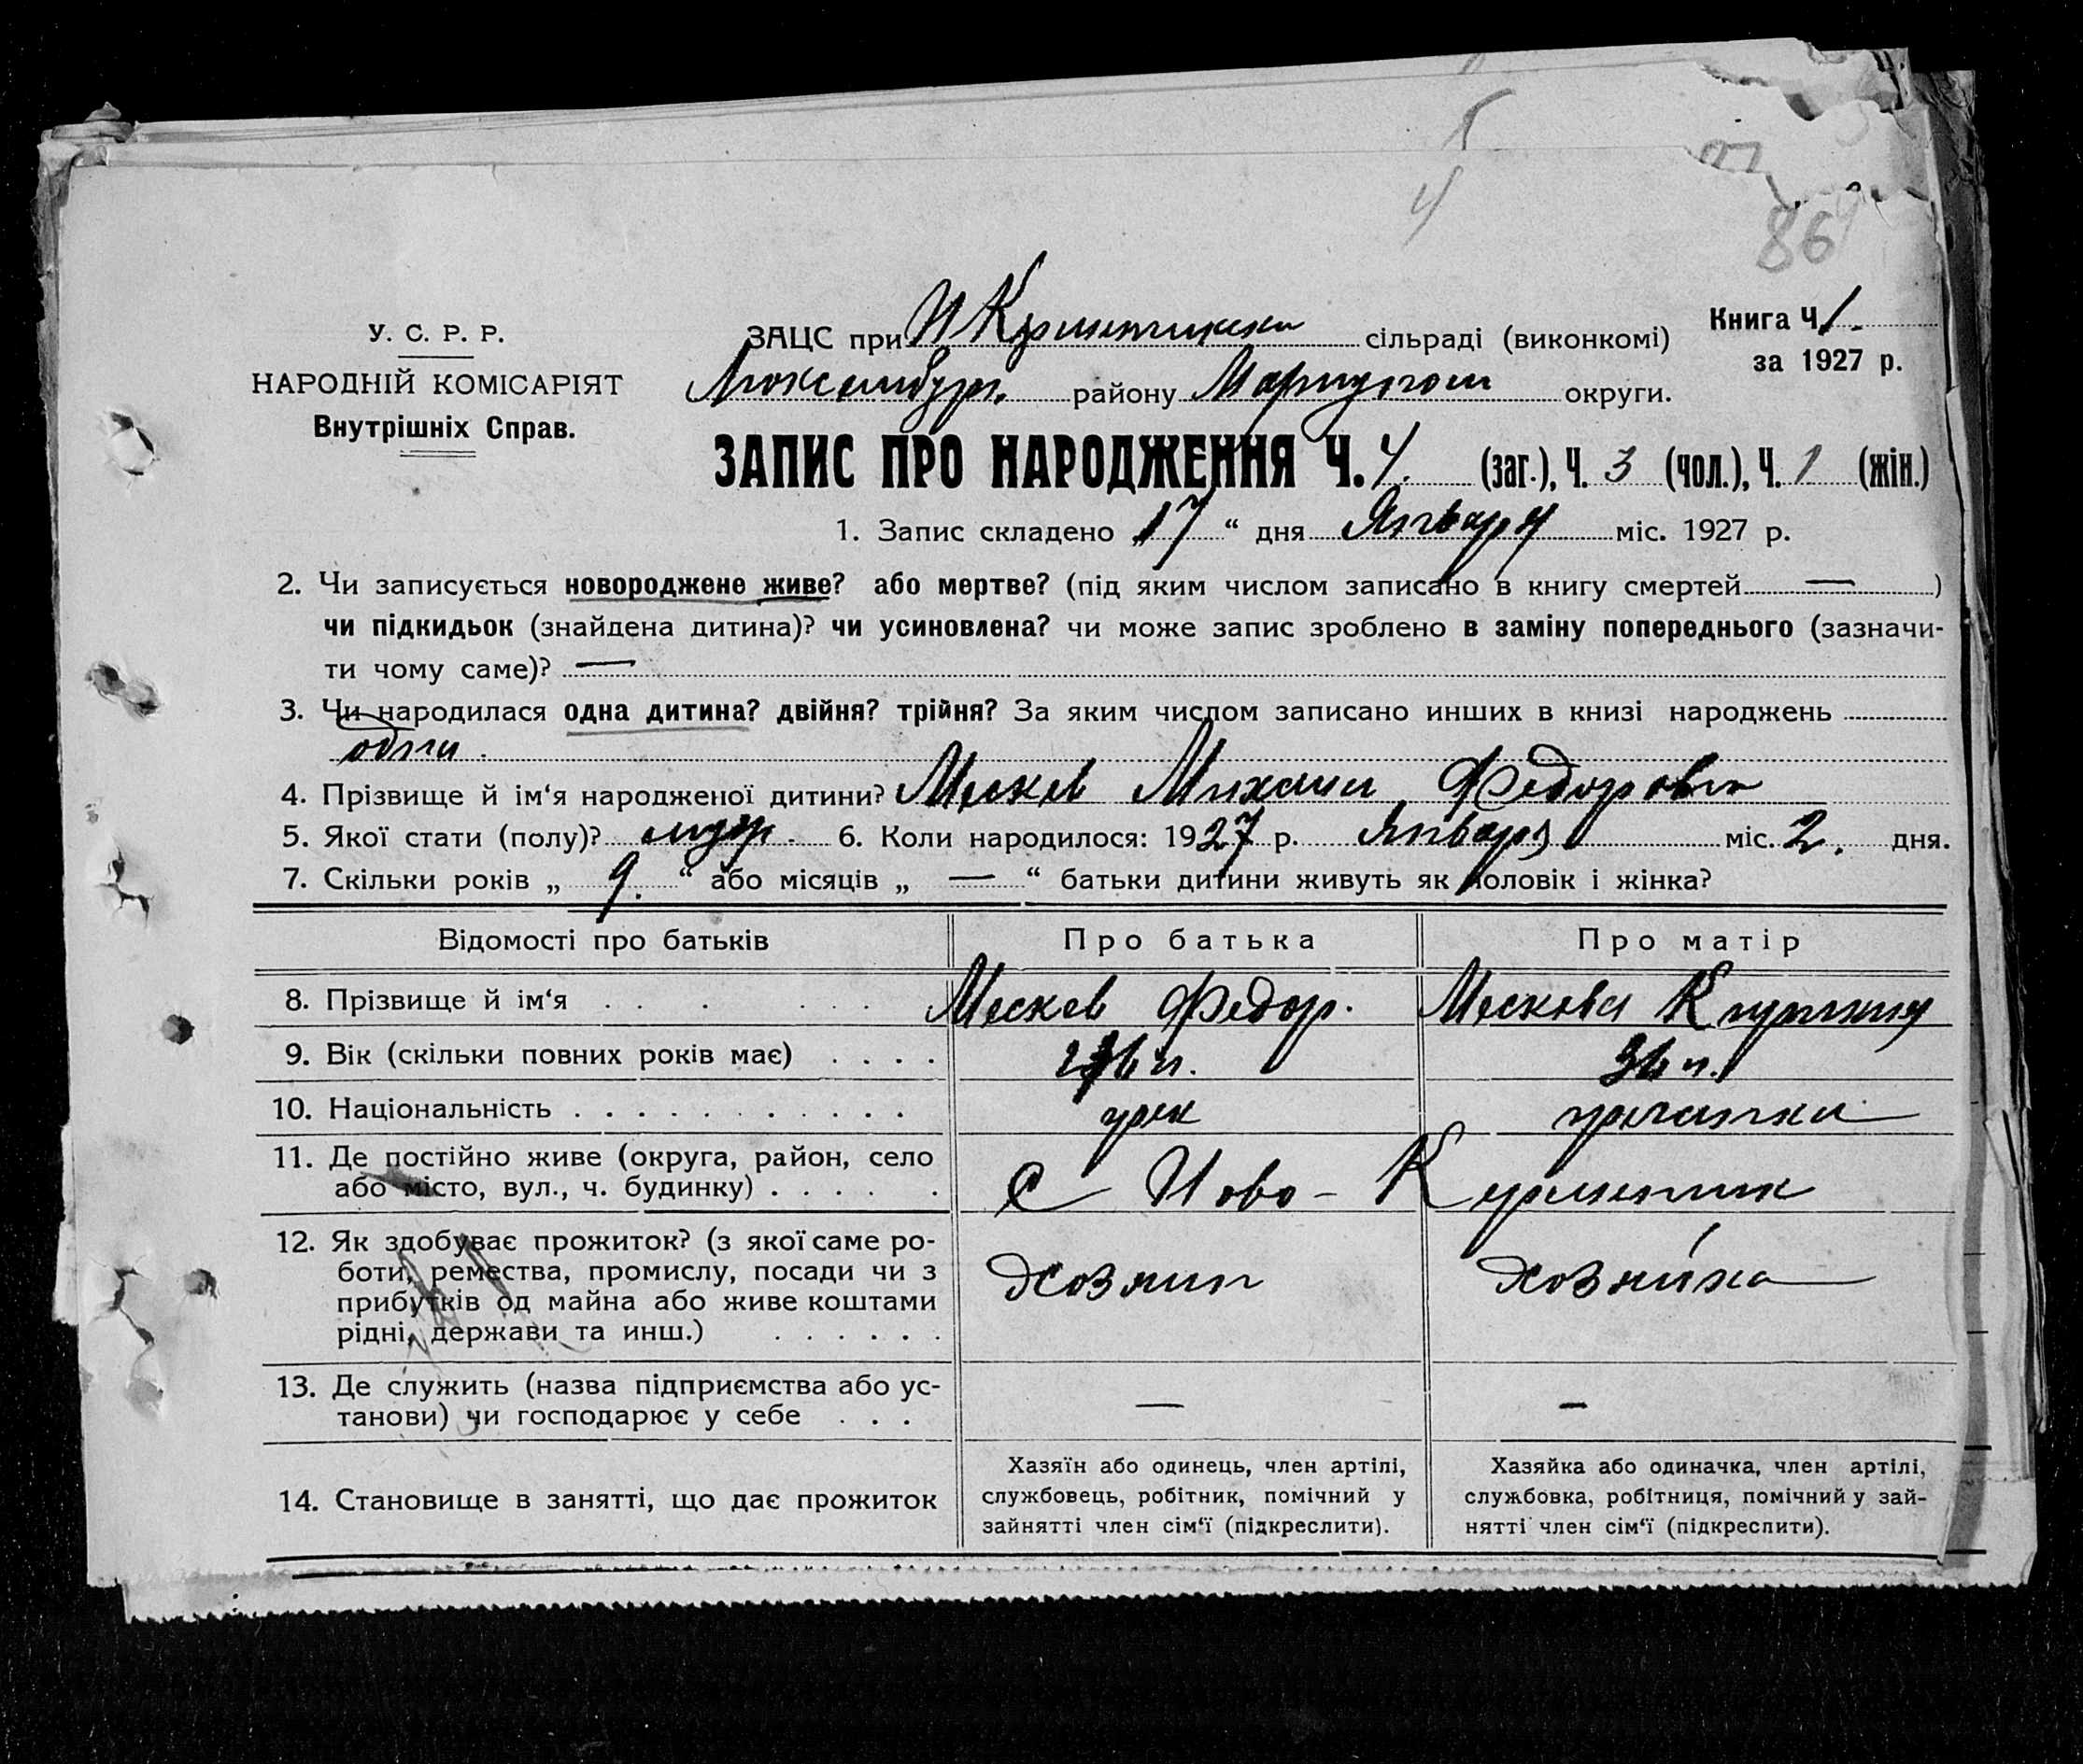 4
86
У. С. Р. Р.
НАРОДНІЙ КОМІСАРІЯТ
Внутрішніх Справ.
ЗАЦС при сільраді (виконкомі)
Люксембур. району Мариупол округи.
Книга Ч 1.
за 1927 р.
ЗАПИС ПРО НАРОДЖЕННЯ Ч. 4. (заг.), Ч. 3 (чол.), Ч. 1 (жін.)
1. Запис складено „17“ дня Января міс. 1927 р.
2. Чи записується новороджене живе? або мертве? (під яким числом записано в книгу смертей — )
чи підкидьок (знайдена дитина)? чи усиновлена? чи може запис зроблено в заміну попереднього (зазначи-
ти чому саме)? —
3. Чи народилася одна дитина? двійня? трійня? За яким числом записано инших в книзі народжень
4. Прізвище й ім‘я народженої дитини? Михаил Федоров
5. Якої стати (полу)? муж. 6. Коли народилося: 1927 р. Января міс. 2. дня.
7. Скільки років „ 9. “ або місяців „ — “ батьки дитини живуть як чоловік і жінка?
Відомості про батьків Про батька Про матір
8. Прізвище й ім‘я . . . . . . Федор.
9. Вік (скільки повних років має) . . . . 36 л.
10. Національність . . . . . . . . . . . грек гречанка
11. Де постійно живе (округа, район, село
або місто, вул., ч. будинку) . . . . . С Ново-
12. Як здобуває прожиток? (з якої саме ро-
боти, ремества, промислу, посади чи з
прибутків од майна або живе коштами
рідні, держави та инш.) . . . . . .
13. Де служить (назва підприємства або ус-
танови) чи господарює у себе . . . — —
14. Становище в занятті, що дає прожиток
Хазяїн або одинець, член артілі,
службовець, робітник, помічний у
зайнятті член сім‘ї (підкреслити).
Хазяйка або одиначка, член артілі,
службовка, робітниця, помічний у зай-
нятті член сім‘ї (підкреслити).